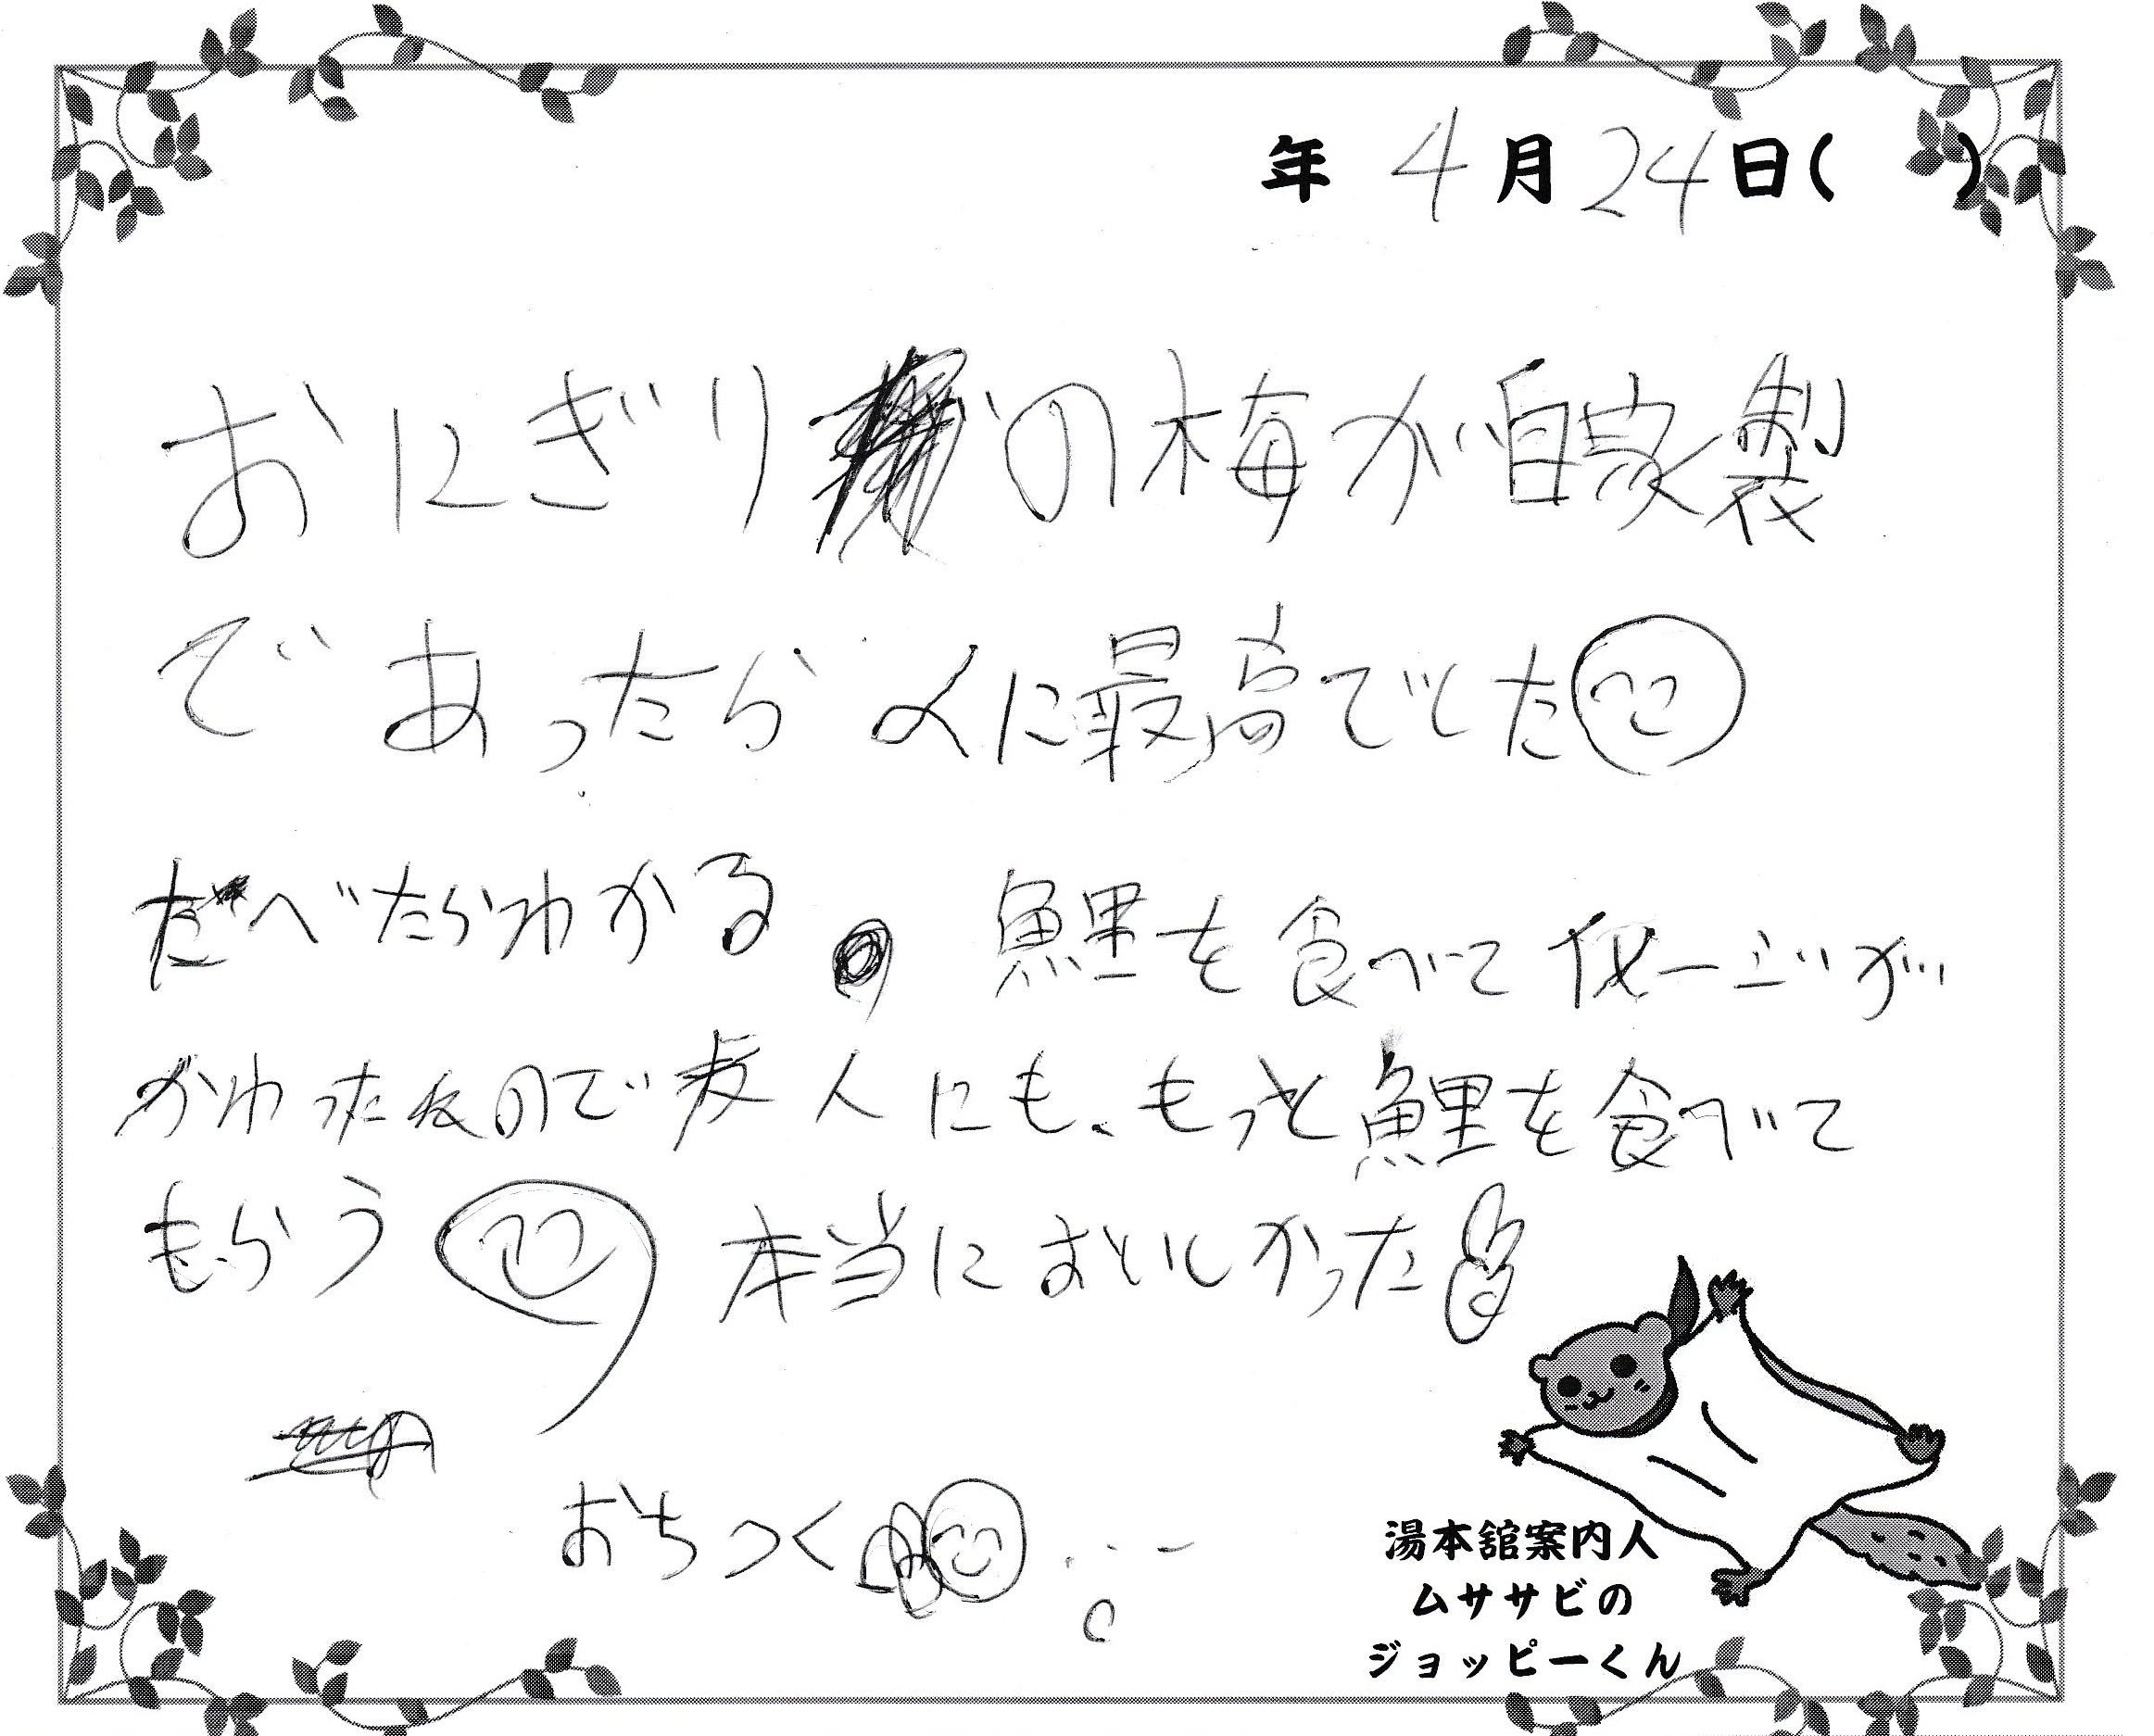 年 4月24日( )
おにぎりの梅が自家製
であったら 人に最高でした
たべたらわかる。 鯉を食べて イメージが
かわったなので友人にも、もっと鯉を食べて
もらう 本当においしかった
おちつく
湯本舘案内人
ムササビの
ジョッピーくん